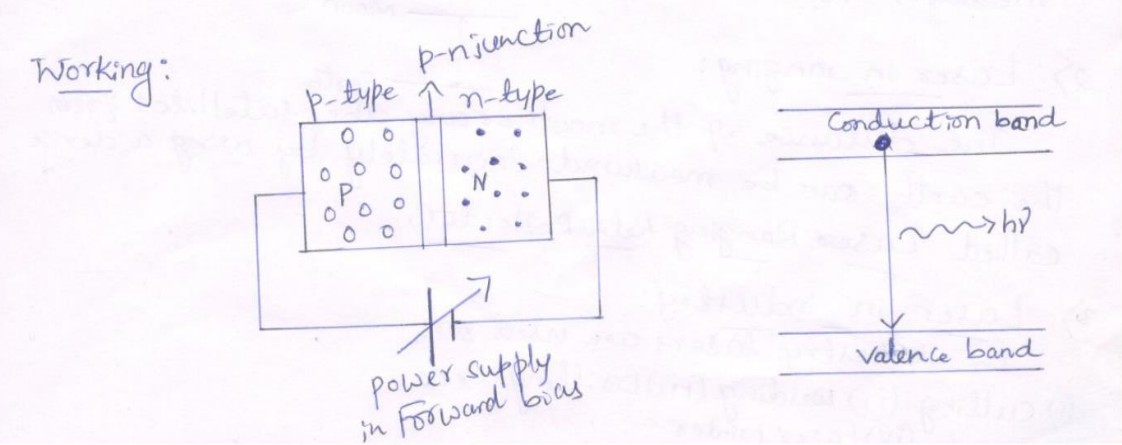 Working:
p-njunction
p-type
n-type
P
N
power supply
in Forward bias
Conduction band
hν
Valence band